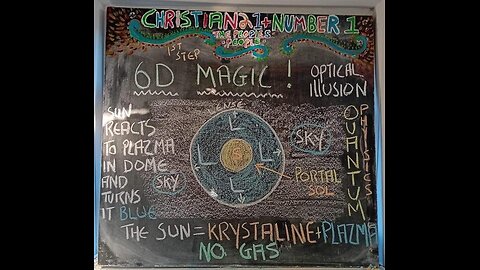 CHRISTIAN21+NUMBER 1
THE PEOPLES
PEOPLE
1ST
STEP
6D MAGIC!
OPTICAL
IllUSION
SUN
REACTS
TO PLAZMA
IN DOME
AND
TURNS
IT BLUE
SKY
L
L
L
L
SKY
PORTAL
SOL
QUANTUM
PHYSICS
THE SUN = KRYSTALINE+PLAZMA
NO GAS